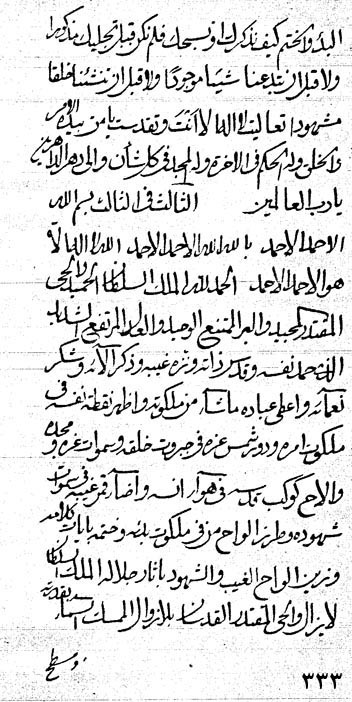 البدء والختم كيف نذكرك او نسبحك فلم تكن قبل تجليك مذكورا
ولا قبل ان تبدعنا شيئا موجودا ولا قبل ان تنشئنا خلقا
مشهودا تعاليت لا اله الا انت وتقدست يا من بيده الامر
والخلق وله الحكم فى الاخرة وله المجد فى كل شان والى دهر الاهرين
يا رب العالمين الثالث فى الثالث بسم الله
الاحمد الاحمد بالله الله الاحمد الاحمد الله لا اله الا
هو الاحمد الاحمد الحمد لله الملك السلطان الحميد والحى
المقتدر المجيد والعز الممتنع الوحيد والعلى المرتفع الشديد
الذى حمد نفسه وقدس ذاته ونزه غيبه وذكر آلائه وشكر
نعمائه واعلى عباده ما شاء من ملكوته واظهر نقطة نفسه فى
ملكوت امره ودور شمس عزه فى جبروت خلقه وسموات عزه ومجده
والاح كوكب فى هواء انسه واضاء قمر غيبه فى سموات
شهوده وطرز الواح من فى ملكوت بدئه وختمه بايات كلامه
وزين الواح الغيب والشهود باثار جلاله الملك السلطان
لا يزال والحى المقتدر القديم بلا زوال الممسك السماء بقدرته
وسطح
٣٣٣